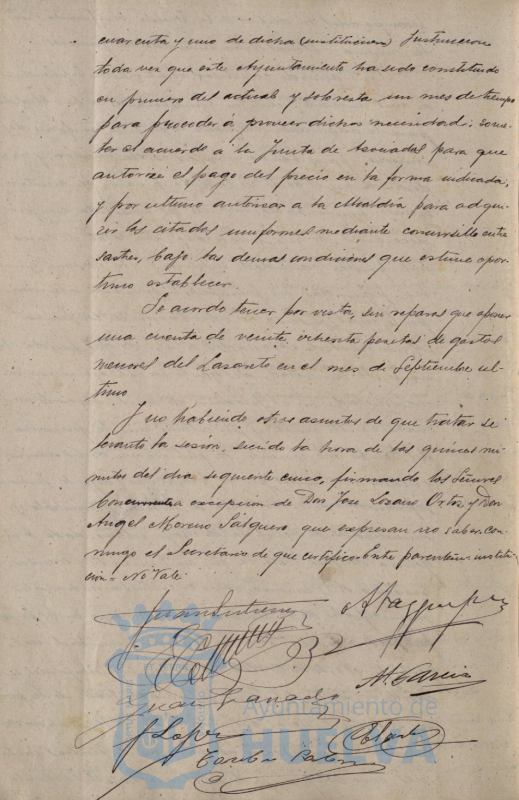 cuarenta y uno de dicha (institución) Instruccion
toda vez que este Ayuntamiento ha sido constituido
en primero del actual y solo resta un mes de tiempo
para proceder á proveer dicha necesidad: some-
ter el acuerdo á la Junta de Asociados para que
autorice el pago del precio en la forma indicada;
y por ultimo autorizar a la Alcaldía para adqui-
rir los citados uniformes mediante concursillo entre
sastres, bajo las demas condiciones que estime opor-
tuno establecer.
Se acordó tener por vista, sin reparos que oponer
una cuenta de veinte, pesetas de gastos
menores del Lazareto en el mes de Septiembre ul-
timo
Y no habiendo otros asuntos de que tratar se
levantó la sesion, siendo la hora de las quince mi-
nutos del dia siguiente cinco, firmando los Señores
Concurrentes a excepcion de Don José Lozano Ortos y Don
Angel Moreno Salguero que expresan no saber, con-
migo el Secretario de que certifico. Entre parentesis = institu-
cion = No Vale.
Juan Granado
M. García
J. Lopez
Ayuntamiento de
HUELVA